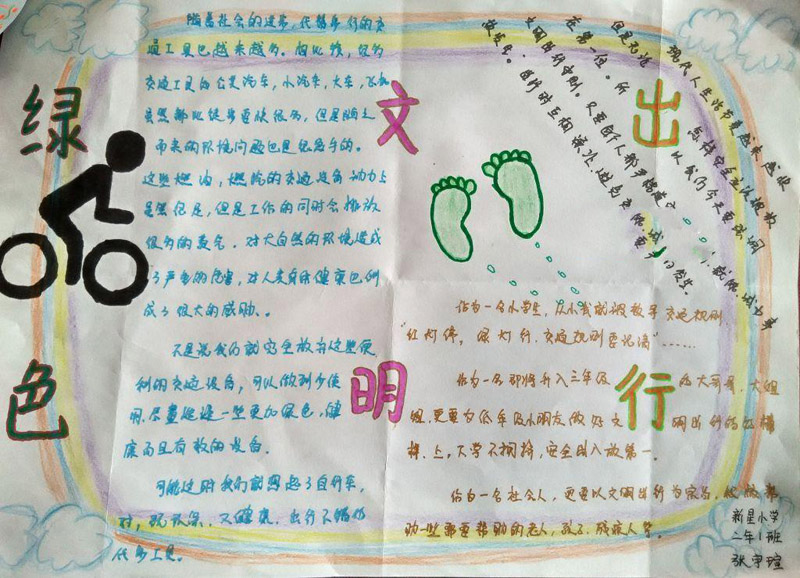 绿色
文明
出行
随着社会的进步,代替步行的交
通工具已越来越多。相比较,较为
交通工具的公共汽车,小汽车,火车,飞机
虽然都比徒步要快很多,但是随之
而来的环境问题也是很严峻的。
这些燃油,燃气的交通设备动力上
虽然很足,但是工作的同时会排放
很多的废气,对大自然的环境造成
了严重的危害,对人类身体健康也构
成了很大的威胁。
不是说我们就完全放弃这些便
利的交通设备,可以做到少使
用,尽量选择一些更加绿色,健
康而且有效的设备。
可能这时我们就想起了自行车,
对,既环保,又健康,出行不错的
代步工具。
现代人生活节奏越来越快
但是无论
怎样安全应该摆放
在第一位。所
以我们今天要强调
文明出行守则。只要每个人都
故发生。
作为一名小学生,从小我就被教导交通规则
“红灯停,绿灯行,交通规则要记清”……
作为一名即将升入三年级的大哥哥,大姐
姐,更要为低年级小朋友做好文明出行的好榜
样。上,下学不拥挤,安全出入放第一。
作为一名社会人,更要以文明出行为宗旨,
助一些需要帮助的老人,孩子,残疾人等。
新星小学
二年1班